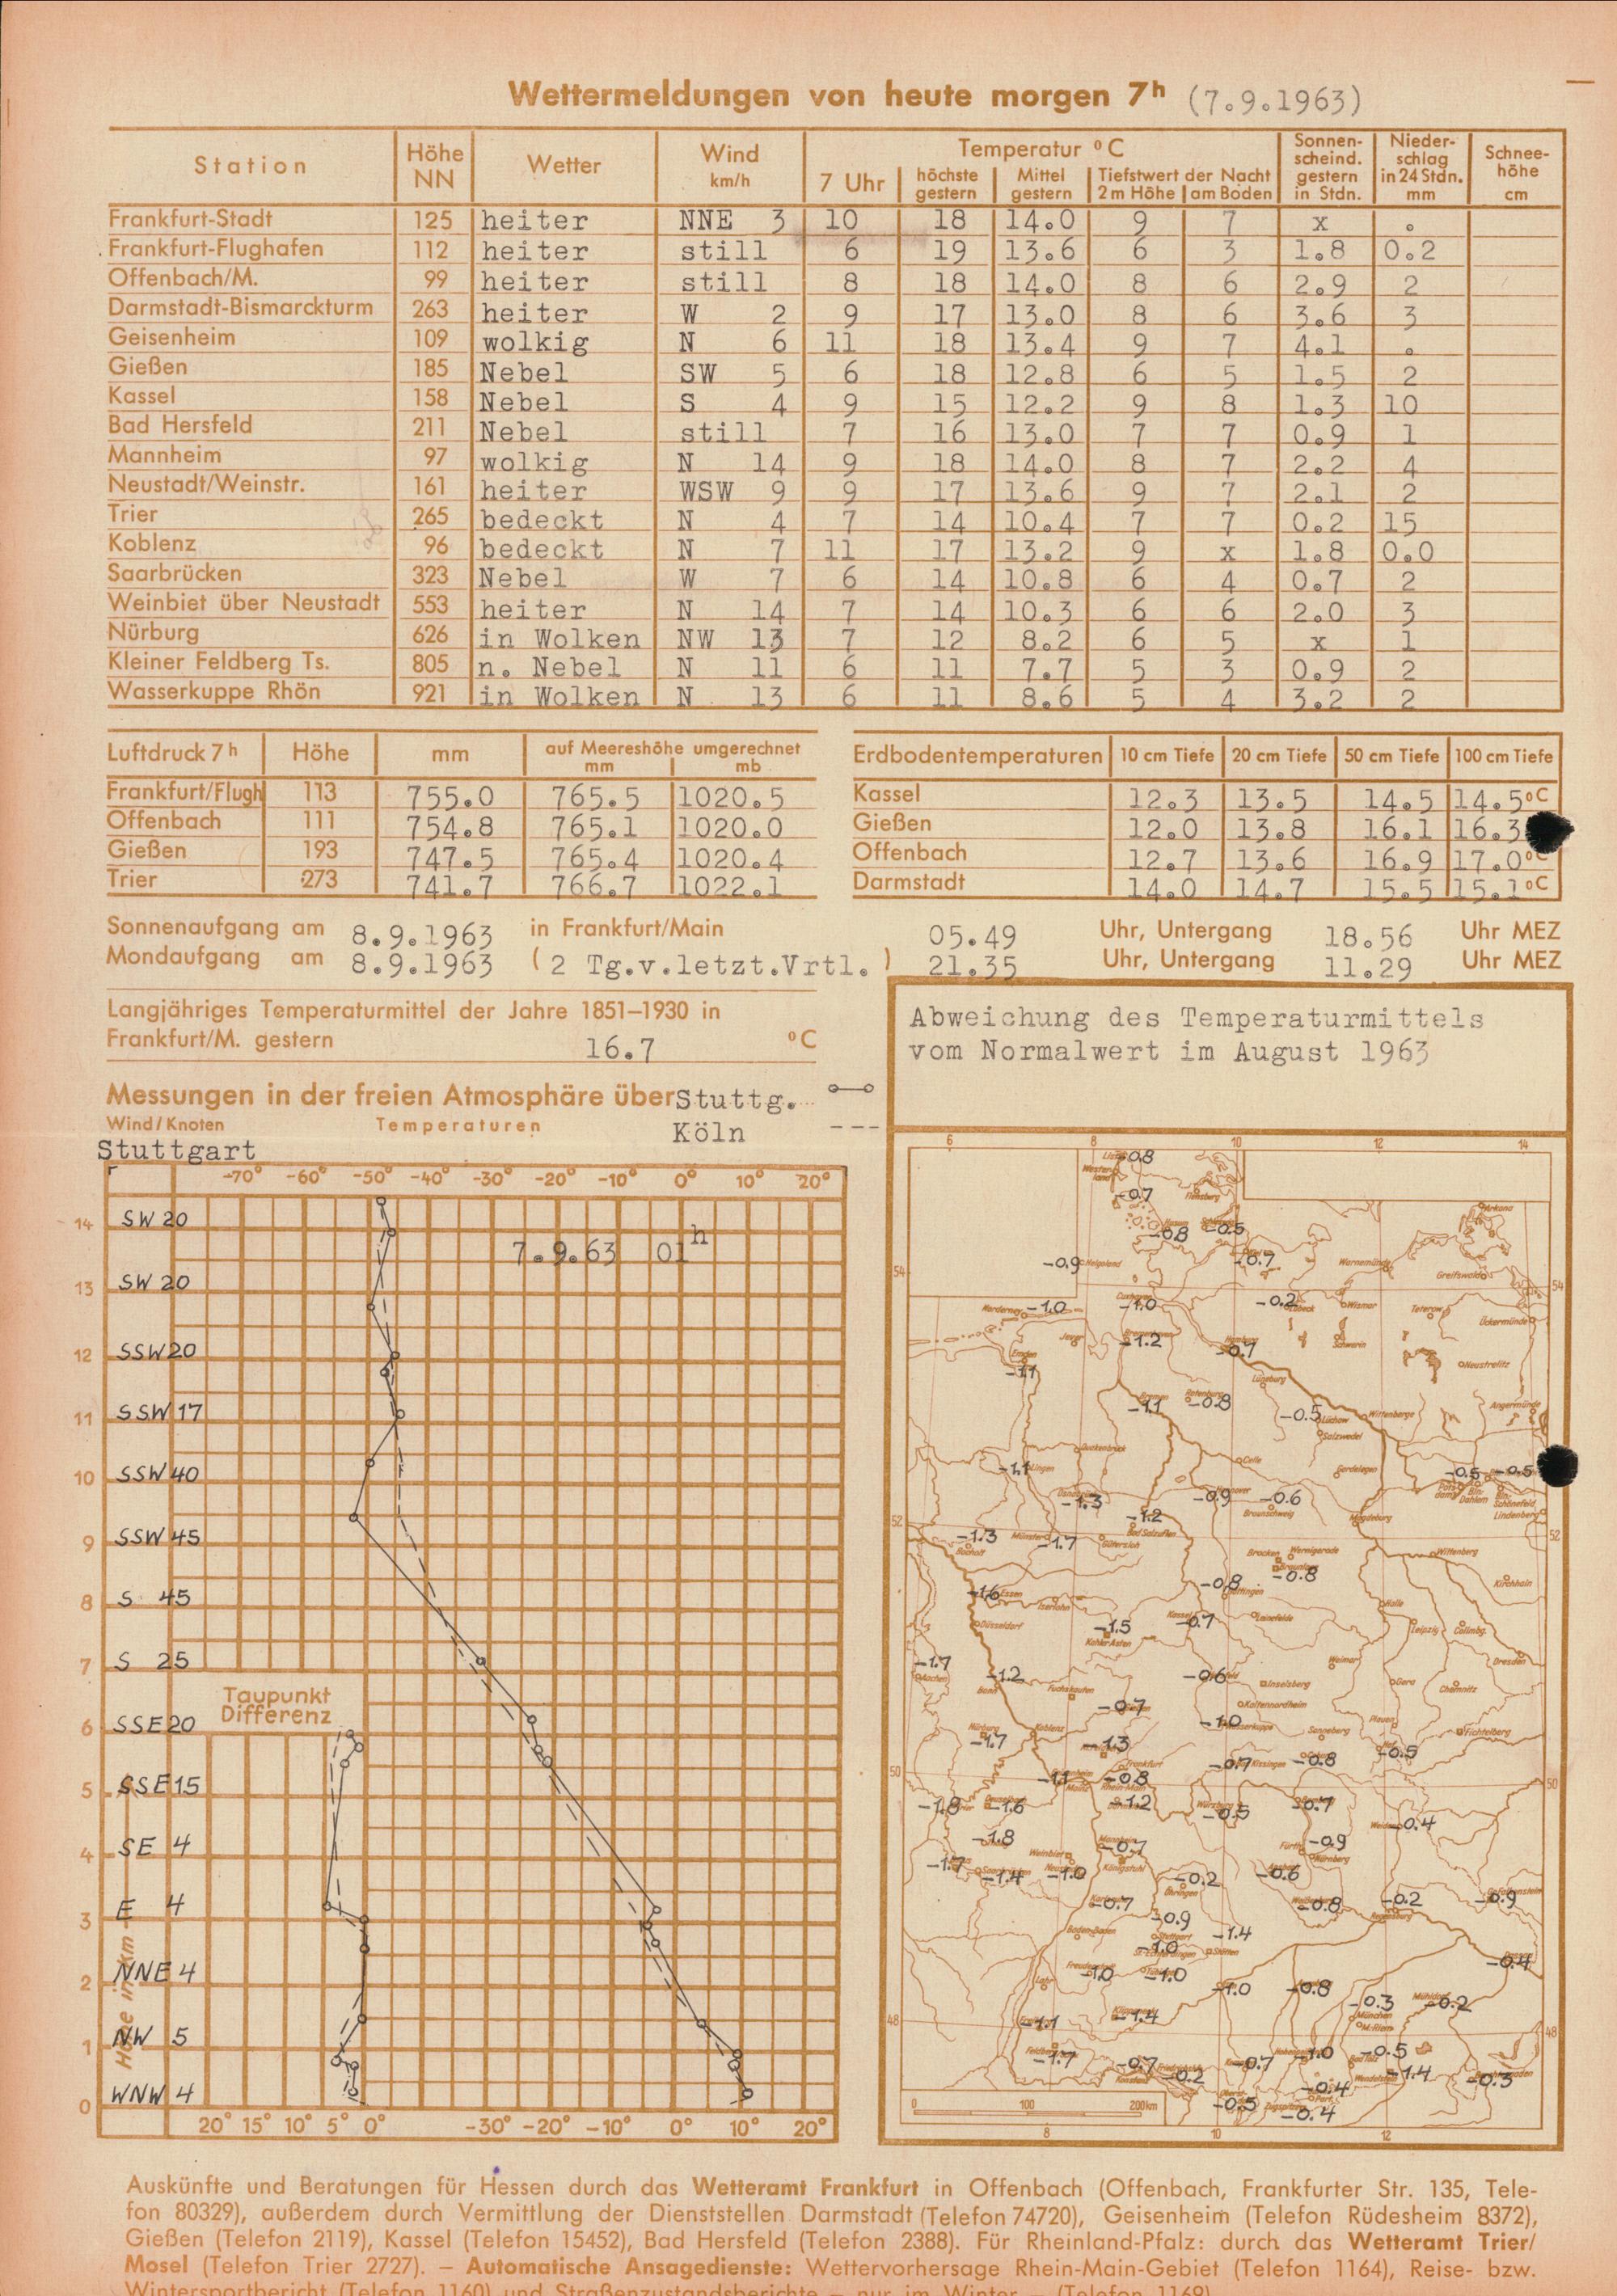 Wettermeldungen von heute morgen 7h (7.9.1963)
Station Höhe NN Wetter Wind km/h Temperatur °C Sonnenscheind. gestern in Stdn. Niederschlag in 24 Stdn. mm Schneehöhe cm
7 Uhr höchste gestern Mittel gestern Tiefstwert der Nacht 2 m Höhe am Boden
Frankfurt-Stadt 125 heiter NNE 3 10 18 14.0 9 7 x .
Frankfurt-Flughafen 112 heiter still 6 19 13.6 6 3 1.8 0.2
Offenbach/M. 99 heiter still 8 18 14.0 8 6 2.9 2
Darmstadt-Bismarckturm 263 heiter W 2 9 17 13.0 8 6 3.6 3
Geisenheim 109 wolkig N 6 11 18 13.4 9 7 4.1 .
Gießen 185 Nebel SW 5 6 18 12.8 6 5 1.5 2
Kassel 158 Nebel S 4 9 15 12.2 9 8 1.3 10
Bad Hersfeld 211 Nebel still 7 16 13.0 7 7 0.9 1
Mannheim 97 wolkig N 14 9 18 14.0 8 7 2.2 4
Neustadt/Weinstr. 161 heiter WSW 9 9 17 13.6 9 7 2.1 2
Trier 265 bedeckt N 4 7 14 10.4 7 7 0.2 15
Koblenz 96 bedeckt N 7 11 17 13.2 9 x 1.8 0.0
Saarbrücken 323 Nebel W 7 6 14 10.8 6 4 0.7 2
Weinbiet über Neustadt 553 heiter N 14 7 14 10.3 6 6 2.0 3
Nürburg 626 in Wolken NW 13 7 12 8.2 6 5 x 1
Kleiner Feldberg Ts. 805 n. Nebel N 11 6 11 7.7 5 3 0.9 2
Wasserkuppe Rhön 921 in Wolken N 13 6 11 8.6 5 4 3.2 2
Luftdruck 7h Höhe mm auf Meereshöhe umgerechnet mm mb
Frankfurt/Flugh 113 755.0 765.5 1020.5
Offenbach 111 754.8 765.1 1020.0
Gießen 193 747.5 765.4 1020.4
Trier 273 741.7 766.7 1022.1
Erdbodentemperaturen 10 cm Tiefe 20 cm Tiefe 50 cm Tiefe 100 cm Tiefe
Kassel 12.3 13.5 14.5 14.5°C
Gießen 12.0 13.8 16.1 16.3
Offenbach 12.7 13.6 16.9 17.0°C
Darmstadt 14.0 14.7 15.5 15.1°C
Sonnenaufgang am 8.9.1963 in Frankfurt/Main 05.49 Uhr, Untergang 18.56 Uhr MEZ
Mondaufgang am 8.9.1963 (2 Tg.v.letzt.Vrtl.) 21.35 Uhr, Untergang 11.29 Uhr MEZ
Langjähriges Temperaturmittel der Jahre 1851–1930 in
Frankfurt/M. gestern 16.7 °C
Messungen in der freien Atmosphäre über Stuttg.
Wind/Knoten Temperaturen Köln
Stuttgart
-70° -60° -50° -40° -30° -20° -10° 0° 10° 20°
7.9.63 01h
14 SW 20
13 SW 20
12 SSW 20
11 SSW 17
10 SSW 40
9 SSW 45
8 S 45
7 S 25
Taupunkt
Differenz
6 SSE 20
5 SSE 15
4 SE 4
3 E 4
2 NNE 4
1 NW 5
0 WNW 4
Höhe in km
20° 15° 10° 5° 0° -30° -20° -10° 0° 10° 20°
Abweichung des Temperaturmittels
vom Normalwert im August 1963
6 8 10 12 14
-0.8
-0.7
Flensburg Arkona
-0.8 -0.5
-0.9 Helgoland -0.7 Warnemünde Greifswald
54 54
Norderney -1.0 Cuxhaven -1.0 -0.2 Lübeck Wismar Teterow Ückermünde
Jever -1.2 Hamburg -0.7 Schwerin
Emden -1.1 Neustrelitz
Lüneburg
Bremen -1.1 -0.8 -0.5 Lüchow Wittenberge Angermünde
Salzwedel
-1.1 Lingen Celle Gardelegen -0.5 -0.5
Osnabrück -1.3 -0.9 Hannover -0.6 Braunschweig Potsdam Bln.-Dahlem Bln.-Schönefeld
-1.2 Bad Salzuflen Magdeburg Lindenberg
52 52
-1.3 Bocholt Münster -1.7 Gütersloh Brocken Wernigerode Wittenberg
-0.8 Göttingen -0.8 Kirchhain
-1.6 Essen Iserlohn Halle
Düsseldorf -1.5 Kahler Asten Kassel -0.7 Leinefelde Leipzig Collmbg.
-1.7 Aachen -1.2 Bonn -0.6 Weimar Dresden
Inselsberg Gera Chemnitz
-0.7 Kaltennordheim
Nürburg -1.7 Koblenz -1.0 Wasserkuppe Sonneberg Plauen Fichtelberg
-1.3 Frankfurt -0.7 Kissingen -0.8 -0.5
50 -1.1 -0.8 50
-1.8 -1.6 -1.2 -0.5 -0.7 -0.4
-1.8 Weinbiet -0.7 Fürth -0.9 Nürnberg
-1.7 -1.4 -1.0 Königstuhl -0.2 Öhringen -0.6
-0.7 -0.8 -0.2 -0.9
Baden-Baden -0.9 -1.4
-1.0 Stötten -0.4
Lahr -1.0 -1.0 -1.0 -0.8 -0.3 Mühldorf -0.2
48 -1.1 -1.4 München M.-Riem 48
Feldberg -1.7 -0.7 -0.2 -0.7 -1.0 -0.5 -1.4 -0.3
Konstanz -0.5 -0.4
-0.4
0 100 200 km
8 10 12
Auskünfte und Beratungen für Hessen durch das Wetteramt Frankfurt in Offenbach (Offenbach, Frankfurter Str. 135, Tele-
fon 80329), außerdem durch Vermittlung der Dienststellen Darmstadt (Telefon 74720), Geisenheim (Telefon Rüdesheim 8372),
Gießen (Telefon 2119), Kassel (Telefon 15452), Bad Hersfeld (Telefon 2388). Für Rheinland-Pfalz: durch das Wetteramt Trier/
Mosel (Telefon Trier 2727). – Automatische Ansagedienste: Wettervorhersage Rhein-Main-Gebiet (Telefon 1164), Reise- bzw.
Wintersportbericht (Telefon 1160) und Straßenzustandsberichte – nur im Winter – (Telefon 1169)